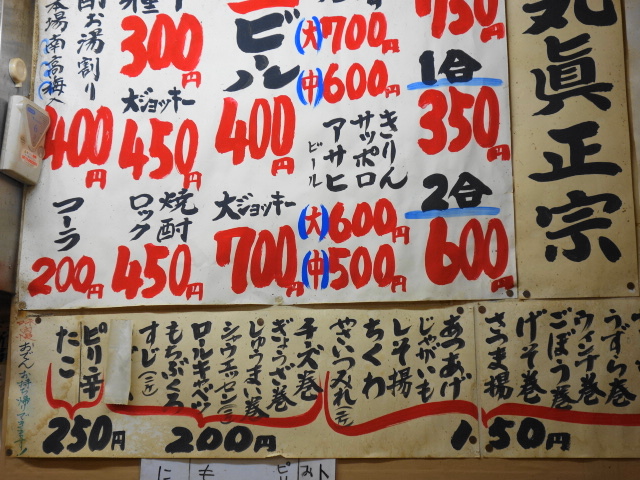 750円
1合
350円
2合
600円
(大)700円
(中)600円
きりん
サッポロ
アサヒ
ビール
(大)600円
(中)500円
ビール
400円
大ジョッキー
700円
300円
大ジョッキー
450円
焼酎
ロック
450円
お湯割り
本場南高梅
400円
コーラ
200円
眞正宗
うずら巻
ウィンナ巻
ごぼう巻
げそ巻
さつま揚
150円
あつあげ
じゃがいも
しそ揚
ちくわ
やさいつみれ(二ケ)
チーズ巻
ぎょうざ巻
しゅうまい巻
シャウエッセン(二ケ)
ロールキャベツ
もちぶくろ
すじ(二ケ)
200円
ピリ辛
たこ
250円
おでんお持ち帰りできます!